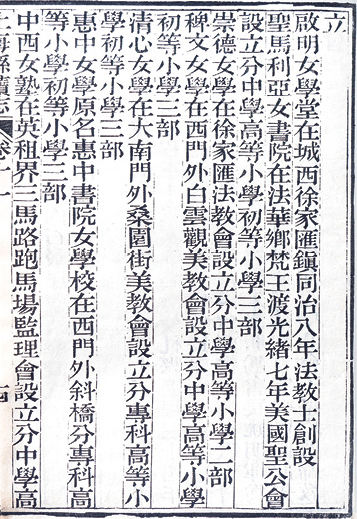 立
啟明女學堂在城西徐家匯鎮同治八年法教士創設
聖馬利亞女書院在法華鄉梵王渡光緒七年美國聖公會
設立分中學高等小學初等小學三部
崇德女學在徐家匯法教會設立分中學高等小學二部
稗文女學在西門外白雲觀美教會設立分中學高等小學
初等小學三部
清心女學在大南門外桑園街美教會設立分專科高等小
學初等小學三部
惠中女學原名惠中書院女學校在西門外斜橋分專科高
等小學初等小學三部
中西女塾在英租界三馬路跑馬場監理會設立分中學高
上海縣續志 卷十一